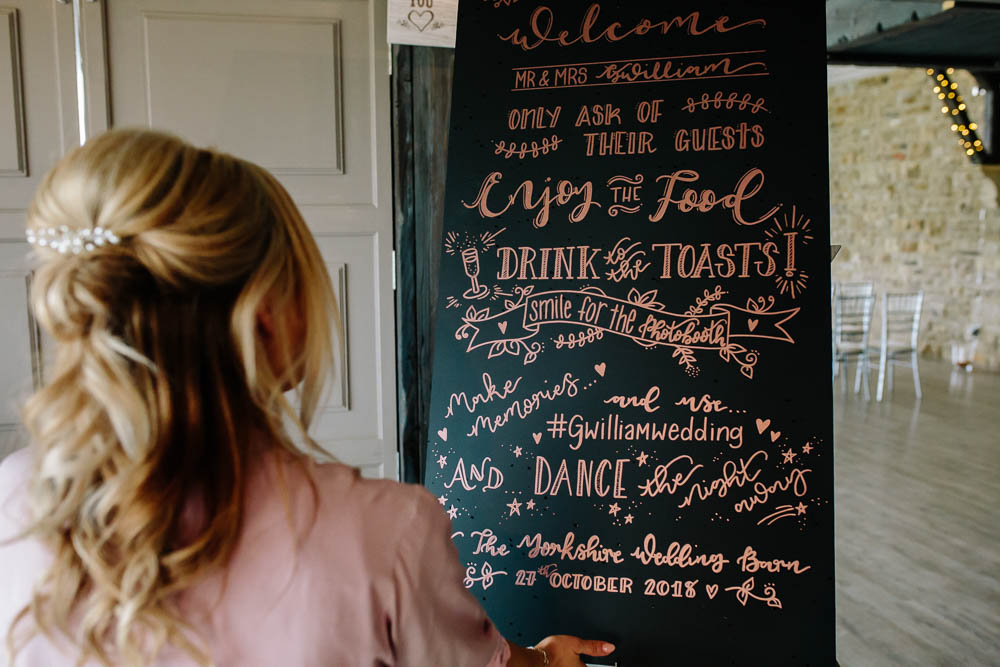 YOU
Welcome
MR & MRS Gwilliam
ONLY ASK OF
THEIR GUESTS
Enjoy THE Food
DRINK to the TOASTS!
Smile for the Photobooth
Make
memories...
and use...
#Gwilliamwedding
AND DANCE the night away
The Yorkshire Wedding Barn
27th OCTOBER 2018